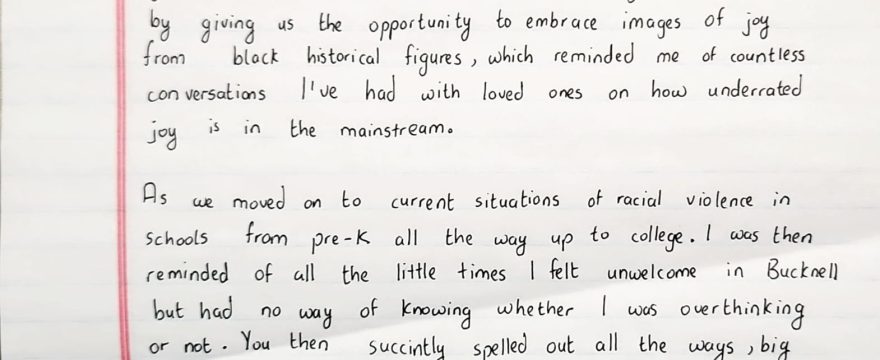 by giving us the opportunity to embrace images of joy
from black historical figures, which reminded me of countless
conversations I've had with loved ones on how underrated
joy is in the mainstream.
As we moved on to current situations of racial violence in
schools from pre-K all the way up to college. I was then
reminded of all the little times I felt unwelcome in Bucknell
but had no way of knowing whether I was overthinking
or not. You then succintly spelled out all the ways, big